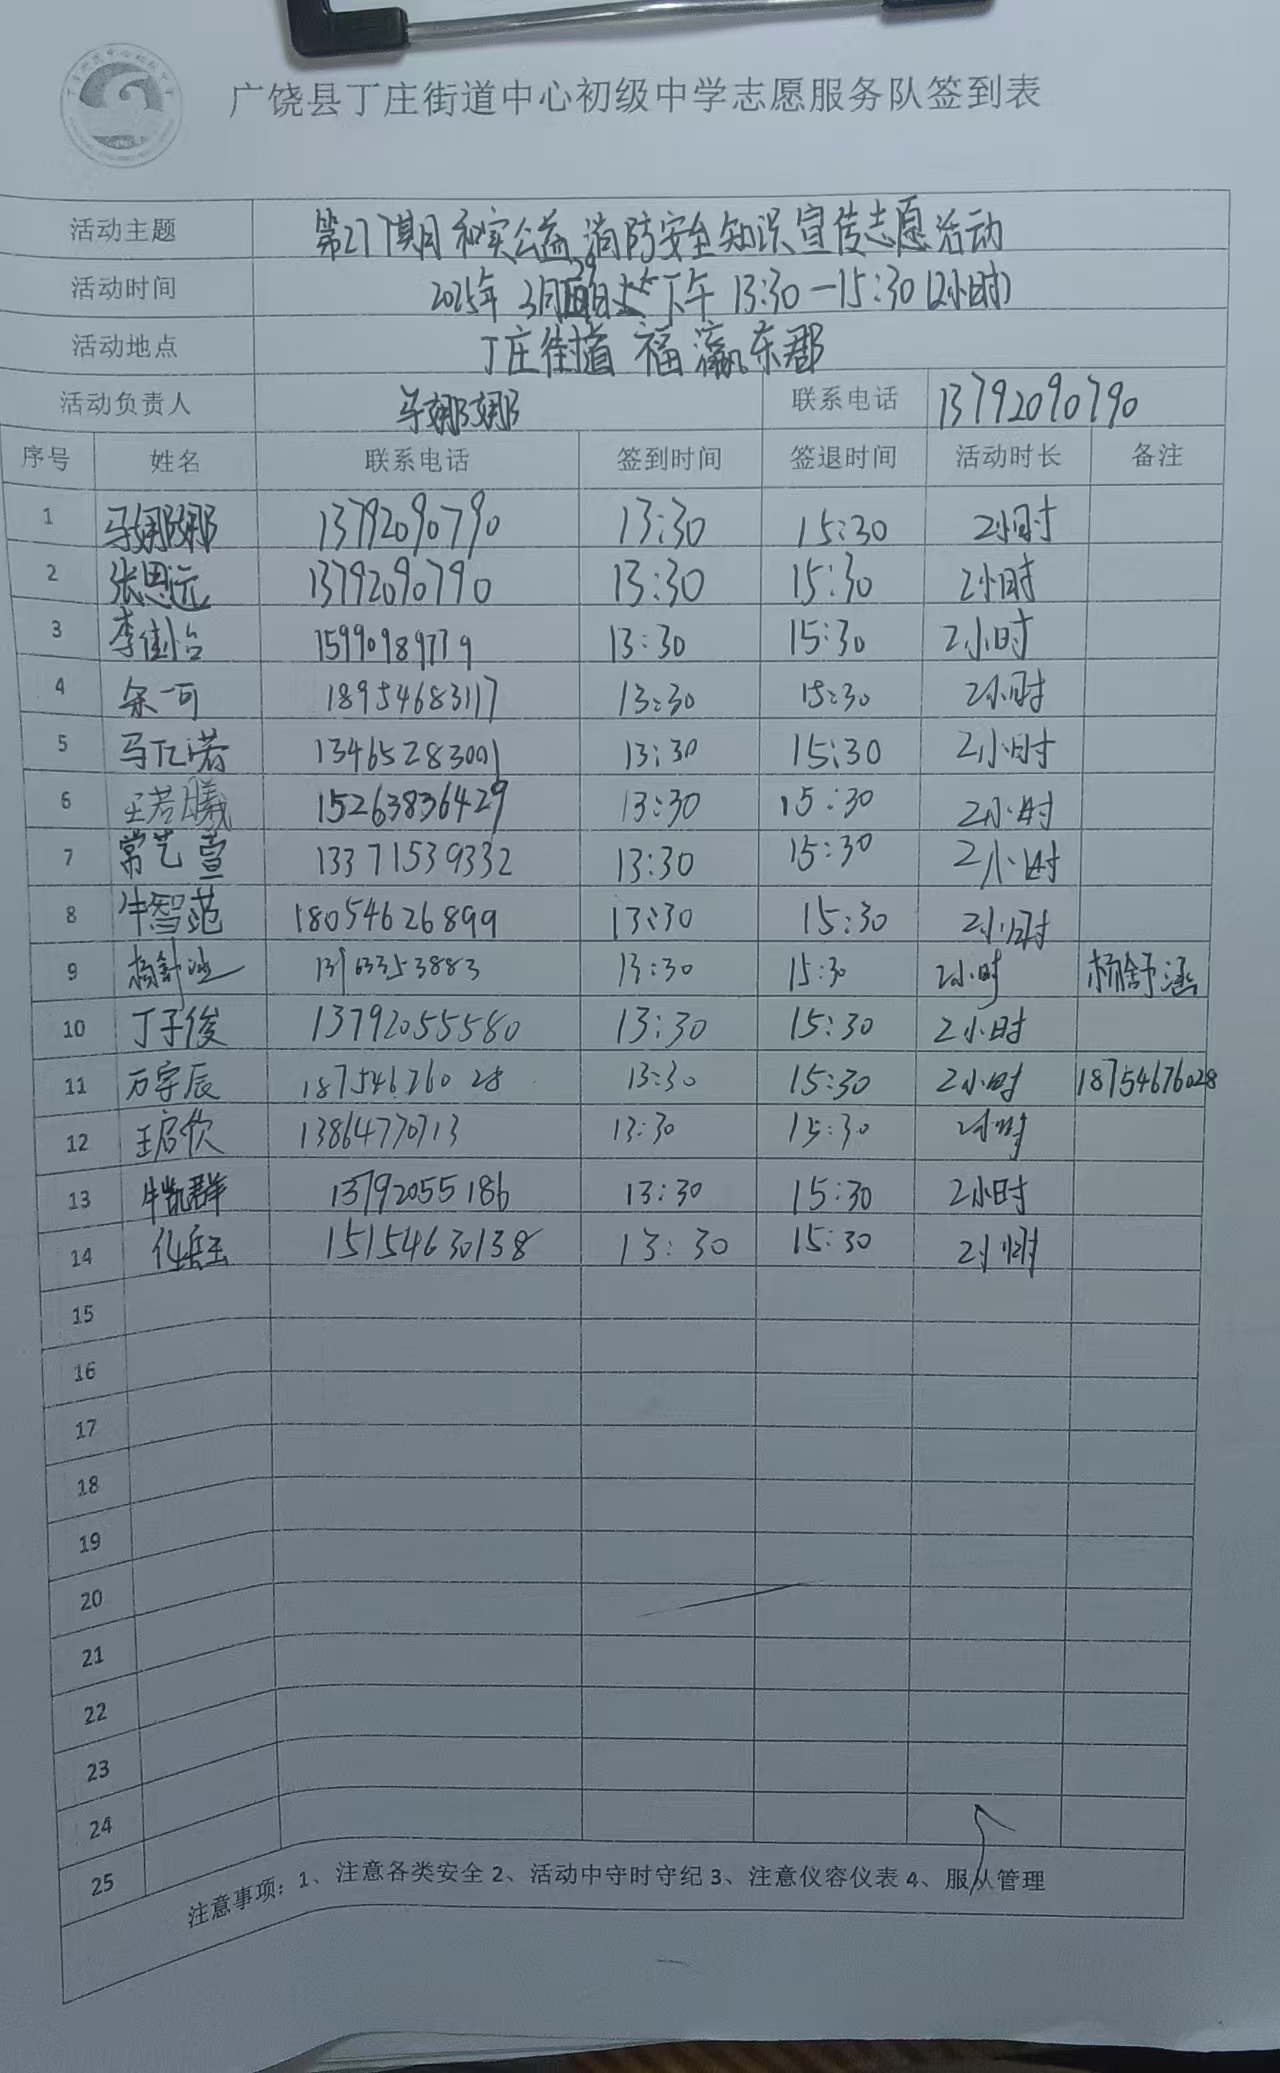 广饶县丁庄街道中心初级中学志愿服务队签到表
活动主题 第277期月和实公益消防安全知识宣传志愿活动
活动时间 2025年 3月29日 下午 13:30-15:30(2小时)
活动地点 丁庄街道 福瀛东郡
活动负责人 马娜娜 联系电话 13792090790
序号 姓名 联系电话 签到时间 签退时间 活动时长 备注
1 马娜娜 13792090790 13:30 15:30 2小时
2 张思远 13792090790 13:30 15:30 2小时
3 李佳怡 15990989779 13:30 15:30 2小时
4 余一可 18954683117 13:30 15:30 2小时
5 马亿诺 13465283001 13:30 15:30 2小时
6 王若曦 15263836429 13:30 15:30 2小时
7 常艺萱 13371539332 13:30 15:30 2小时
8 牛智范 18054626899 13:30 15:30 2小时
9 杨舒涵 13963353883 13:30 15:30 2小时 杨舒涵
10 丁子俊 13792055580 13:30 15:30 2小时
11 万宇辰 18754676028 13:30 15:30 2小时 18754676028
12 王启欣 13864770713 13:30 15:30 2小时
13 牛凯群 13792055186 13:30 15:30 2小时
14 15154630138 13:30 15:30 2小时
15
16
17
18
19
20
21
22
23
24
25
注意事项：1、注意各类安全 2、活动中守时守纪 3、注意仪容仪表 4、服从管理